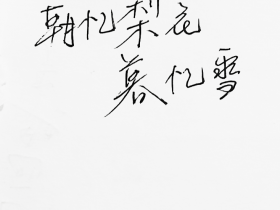 朝忆梨花
暮忆雪